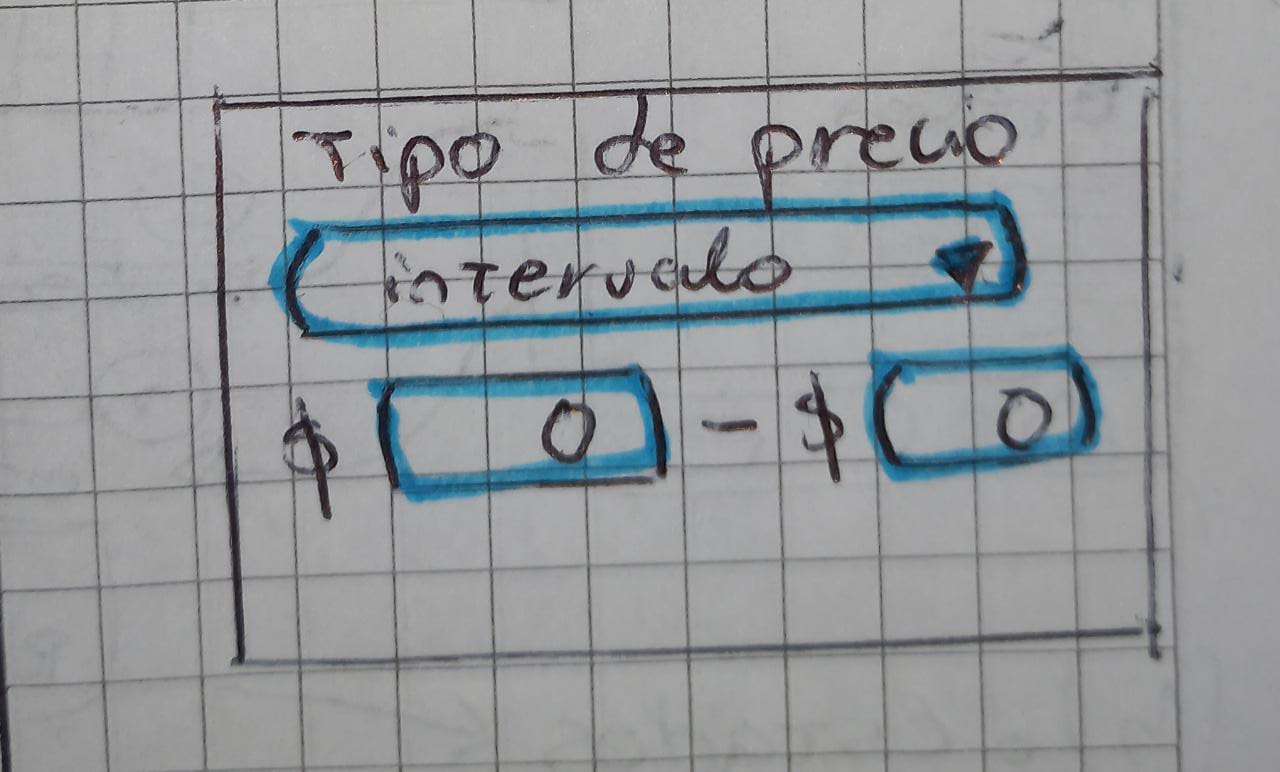 Tipo de precio
intervalo
$ 0 - $ 0